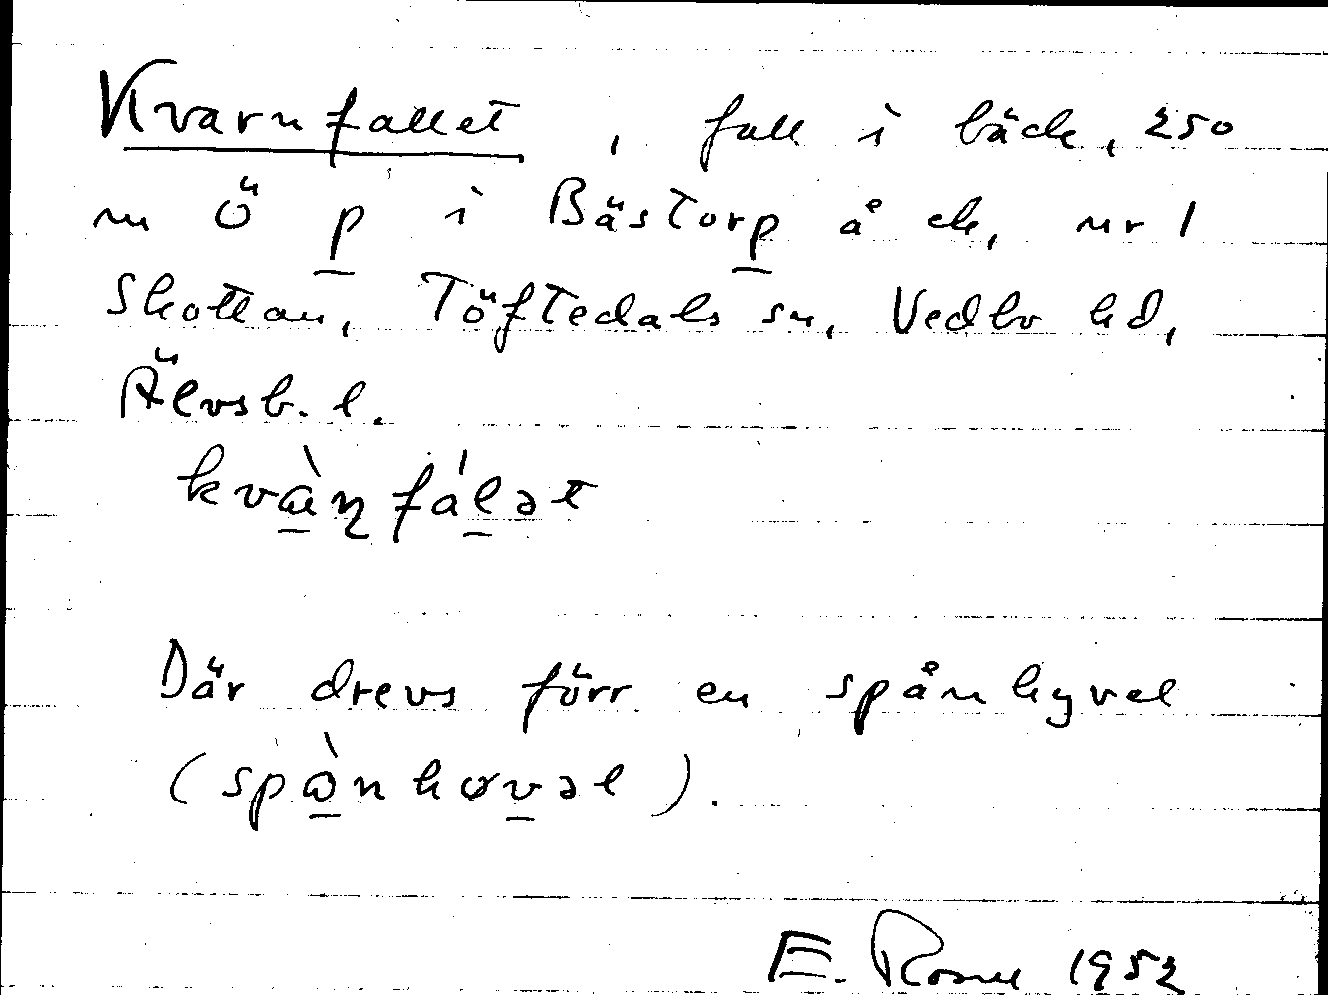 Kvarnfallet, fall i bäck, 250
m Ö p i Bästorp å ek, nr 1
Skottan, Töftedals sn, Vedbo hd,
Älvsb. l.
kvὰɳfálət
Där drevs förr en spånhyvel
(spånhøvəl).
E. 1952